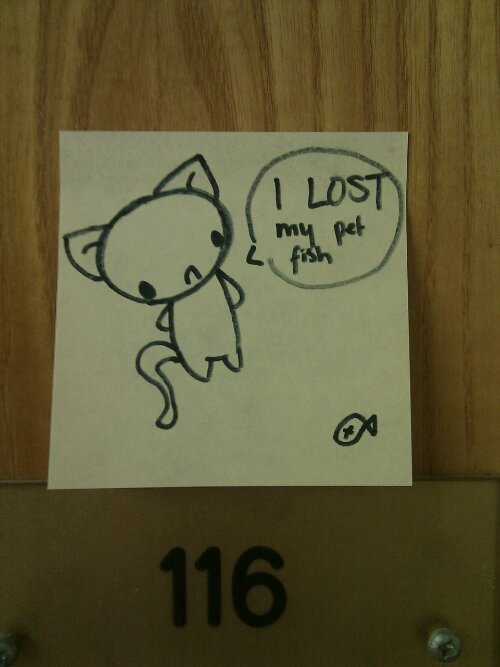 I LOST
my pet
fish
116